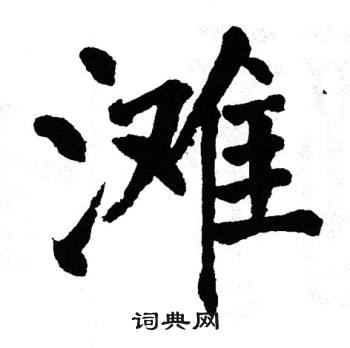 滩
词典网